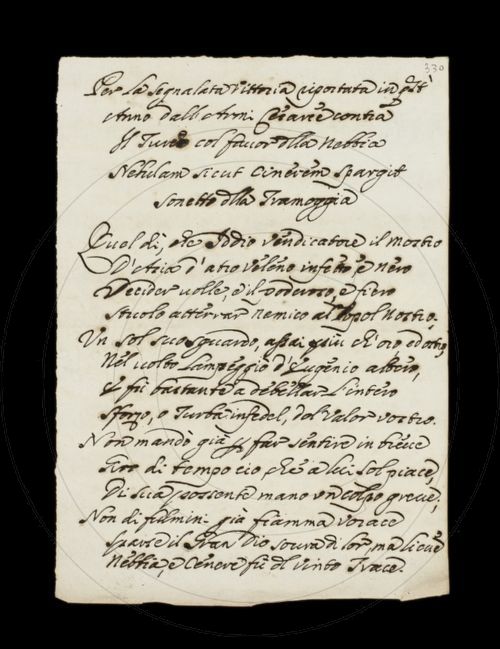 330
Per la segnalata Vittoria riportata in qst'
Anno dall'Armi Cesaree contra
Il Turco col favor dlla Nebbia
Nebulam sicut cinerem spargit
Sonetto dlla Tramoggia
Qual dì, che Iddio vendicatore il mostro
D'Asia d'atro veleno infetto, e nero
Decider volle, e il poderoso, e fiero
Stuolo atterrar nemico al Popol nostro,
Un sol suo sguardo, assai più ch'oro ed ostro,
Nel volto lampeggiò d'Eugenio altero,
E fù bastante a debellar l'intero
Sforzo, o Turba infedel, dol valor vostro.
Non mandò già p far sentire in breve
Giro di tempo ciò, che a lui sol piace,
Di sua possente mano un colpo greve,
Non di fulmini già fiamma vorace
Sparse il Gran Dio sovra di lor, ma lieve
Nebbia, e Cenere fù dl vinto Trace.